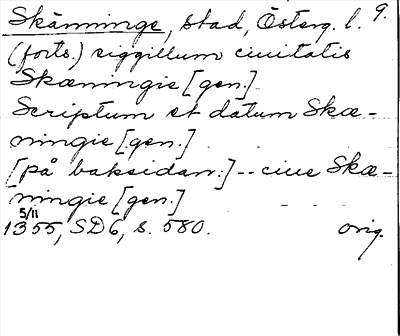 Skänninge, stad, Österg. l. 9.
(forts.) siggillum ciuitatis
Skæningie [gen.]
Scriptum et datum Skæ-
ningie [gen.]
[på baksidan:] -- ciue Skæ-
ningie [gen.]
5/11
1355, SD6, s. 580. orig.